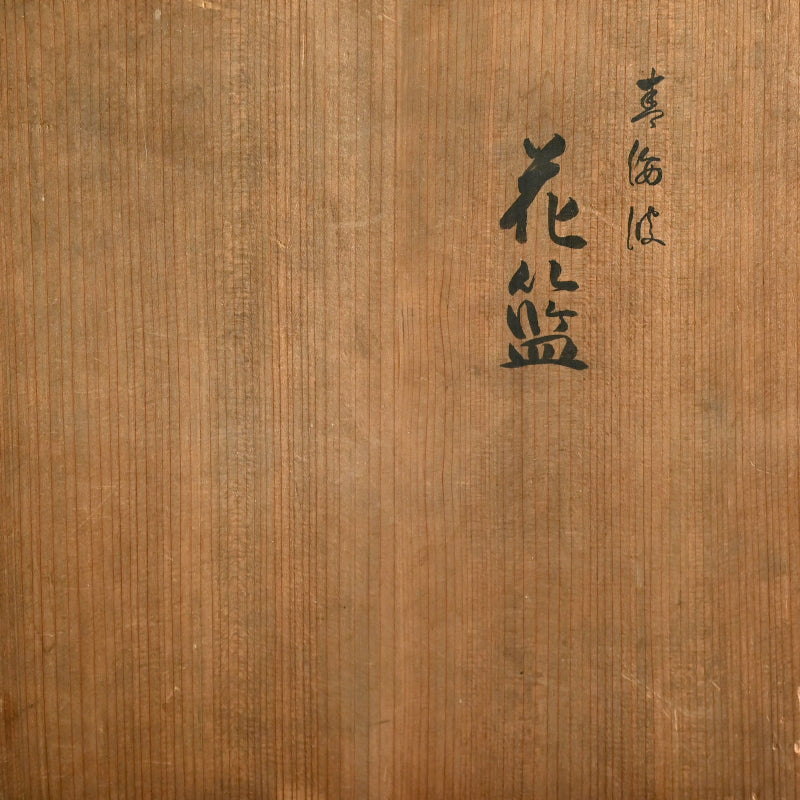 青海波
花籃